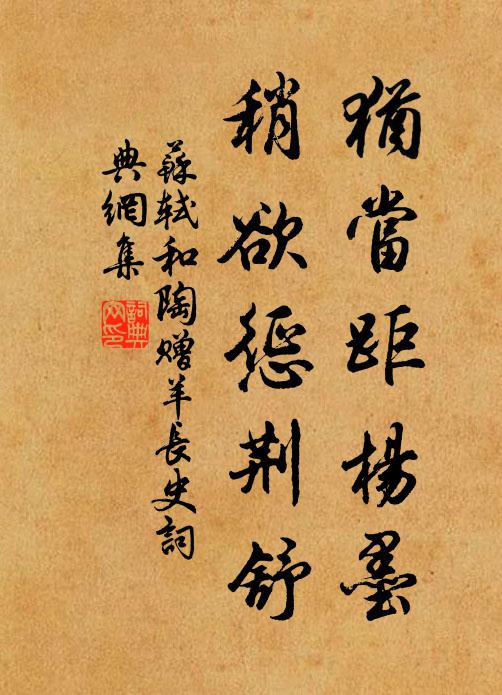 猶當距楊墨
稍欲懲荆舒
蘇軾和陶贈羊長史詞
典網集
詞典